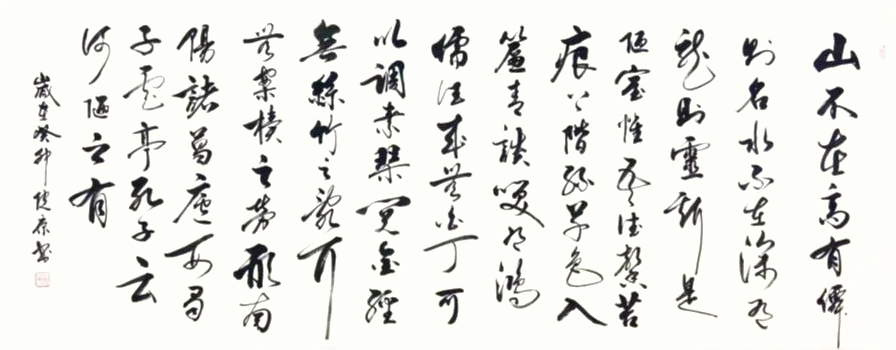 山不在高有僊
則名水不在深有
龍則靈斯是
陋室惟吾德馨苔
痕上階綠草色入
簾青談笑有鴻
儒往來無白丁可
以調素琴閱金經
無絲竹之亂耳
無案牘之勞形南
陽諸葛廬西蜀
子雲亭孔子云
何陋之有
歲在癸卯書